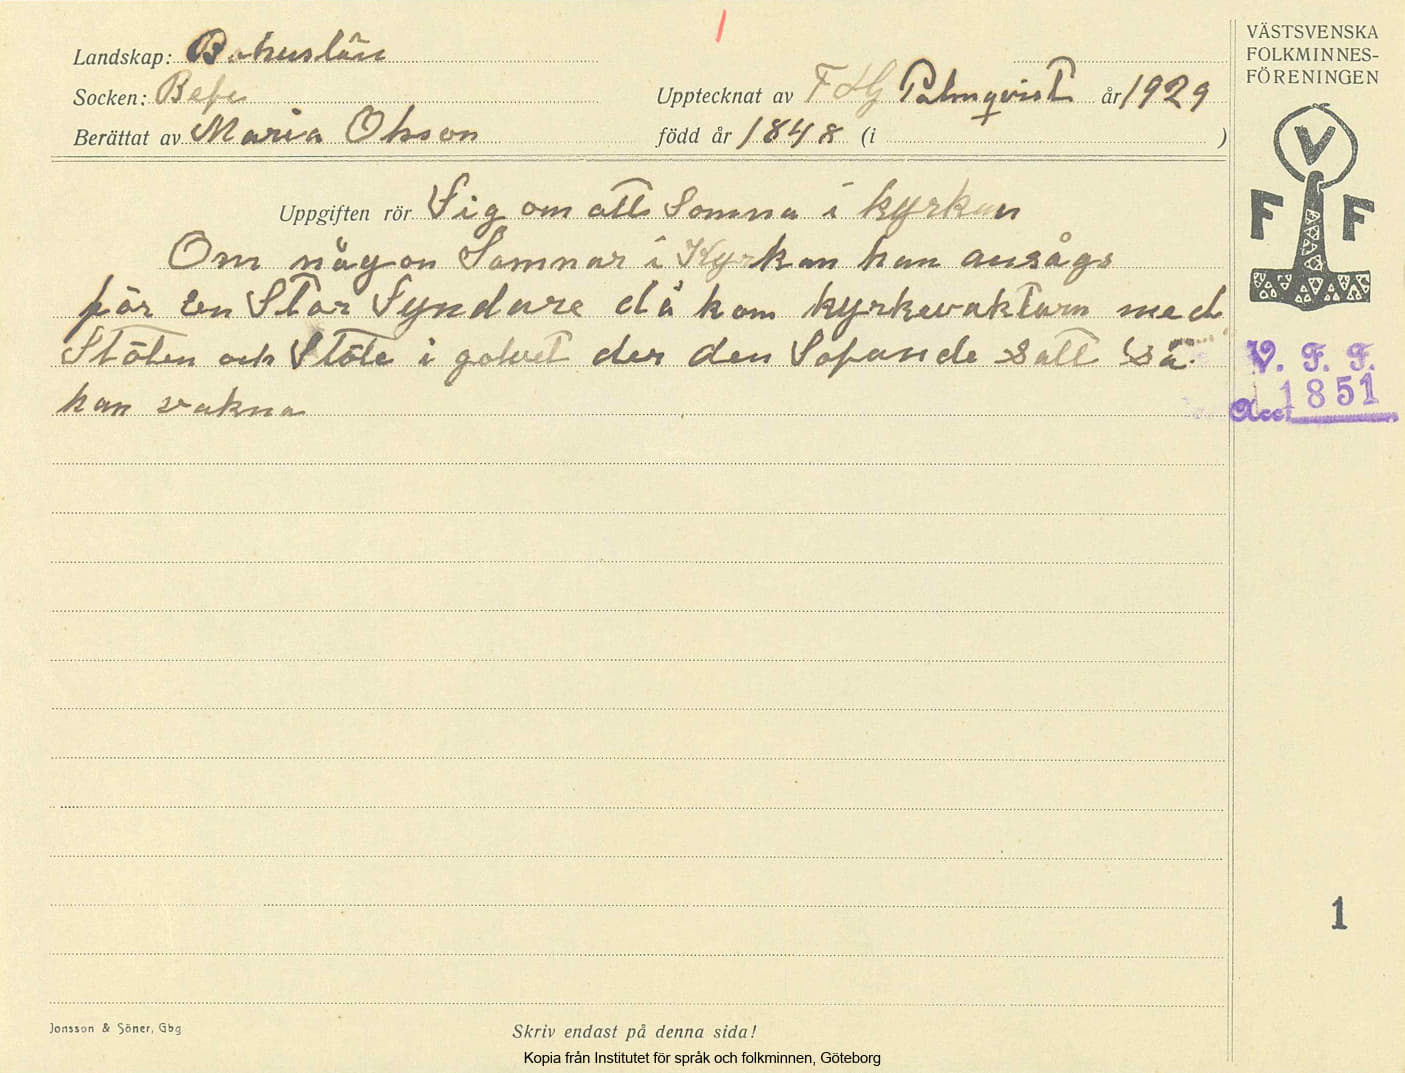 Landskap: Bohuslän
Socken: Befe
Upptecknat av F HG Palmqvist år 1929
Berättat av Maria Olsson
född år 1848 (i )
Uppgiften rör Sig om att Somna i kyrkan
Om någon Somnar i Kyrkan han ansågs
för en Stor Syndare då kom kyrkevaktarn med
Stöten och Stöte i golvet der den Sofande satt så
han vakna
VÄSTSVENSKA
FOLKMINNES-
FÖRENINGEN
V
F F
V. F. F.
Acc. 1851
1
Jonsson & Söner, Gbg
Skriv endast på denna sida!
Kopia från Institutet för språk och folkminnen, Göteborg